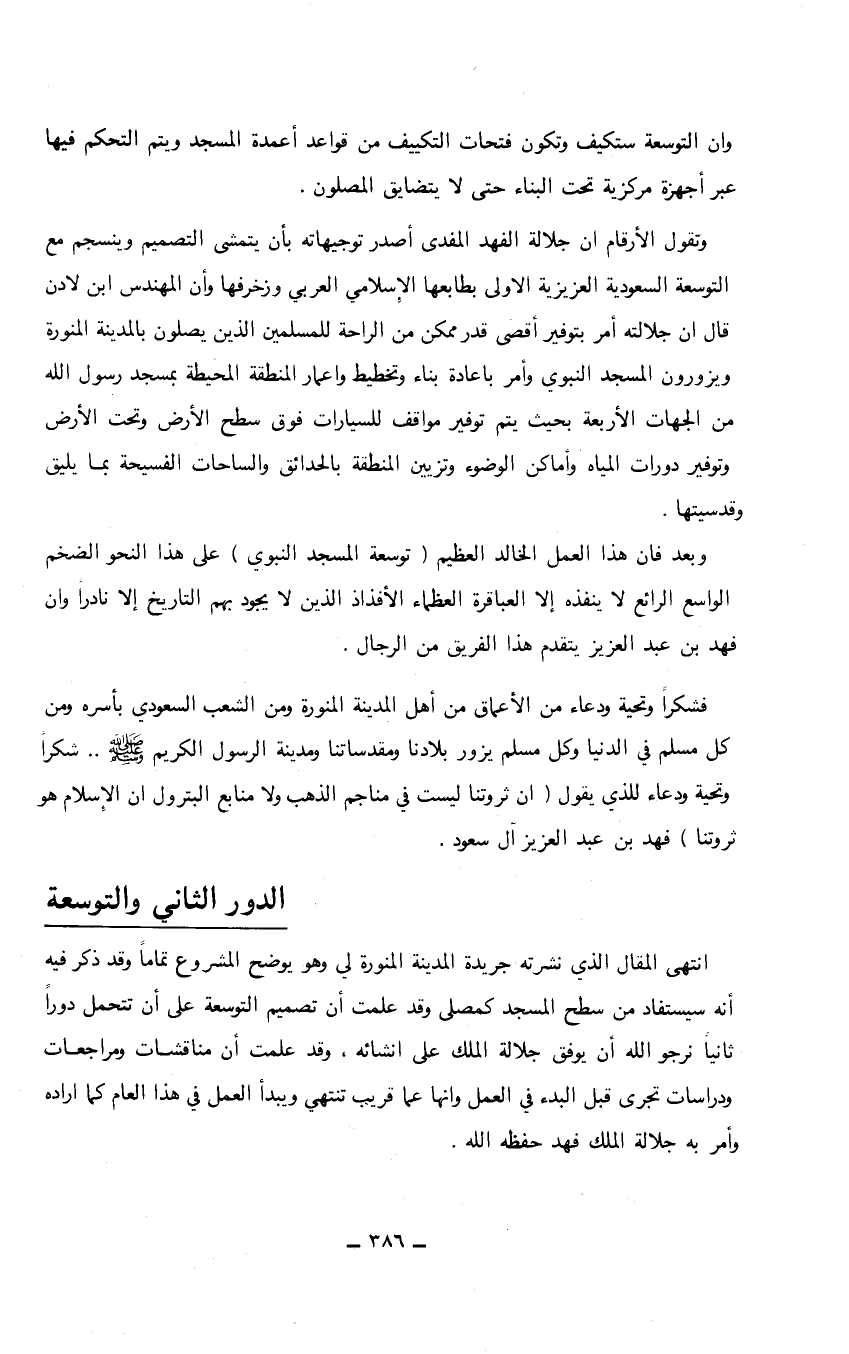 وان التوسعة ستكيف وتكون فتحات التكييف من قواعد أعمدة المسجد ويتم التحكم فيها
عبر أجهزة مركزية تحت البناء حتى لا يتضايق المصلون .
وتقول الأرقام ان جلالة الفهد المفدى أصدر توجيهاته بأن يتمشى التصميم وينسجم مع
التوسعة السعودية العزيزية الاولى بطابعها الإسلامي العربي وزخرفها وأن المهندس ابن لادن
قال ان جلالته أمر بتوفير أقصى قدر ممكن من الراحة للمسلمين الذين يصلون بالمدينة المنورة
ويزورون المسجد النبوي وأمر باعادة بناء وتخطيط واعمار المنطقة المحيطة بمسجد رسول الله
من الجهات الأربعة بحيث يتم توفير مواقف للسيارات فوق سطح الأرض وتحت الأرض
وتوفير دورات المياه وأماكن الوضوء وتزيين المنطقة بالحدائق والساحات الفسيحة بما يليق
وقدسيتها .
وبعد فان هذا العمل الخالد العظيم ( توسعة المسجد النبوي ) على هذا النحو الضخم
الواسع الرائع لا ينفذه إلا العباقرة العظماء الأفذاذ الذين لا يجود بهم التاريخ إلا نادراً وان
فهد بن عبد العزيز يتقدم هذا الفريق من الرجال .
فشكراً وتحية ودعاء من الأعماق من أهل المدينة المنورة ومن الشعب السعودي بأسره ومن
كل مسلم في الدنيا وكل مسلم يزور بلادنا ومقدساتنا ومدينة الرسول الكريم ﷺ .. شكراً
وتحية ودعاء للذي يقول ( ان ثروتنا ليست في مناجم الذهب ولا منابع البترول ان الإسلام هو
ثروتنا ) فهد بن عبد العزيز آل سعود .
الدور الثاني والتوسعة
انتهى المقال الذي نشرته جريدة المدينة المنورة لي وهو يوضح المشروع تماماً وقد ذكر فيه
أنه سيستفاد من سطح المسجد كمصلى وقد علمت أن تصميم التوسعة على أن تتحمل دوراً
ثانياً نرجو الله أن يوفق جلالة الملك على انشائه ، وقد علمت أن مناقشات ومراجعات
ودراسات تجرى قبل البدء في العمل وانها عما قريب تنتهي ويبدأ العمل في هذا العام كما اراده
وأمر به جلالة الملك فهد حفظه الله .
ــ ٣٨٦ ــ